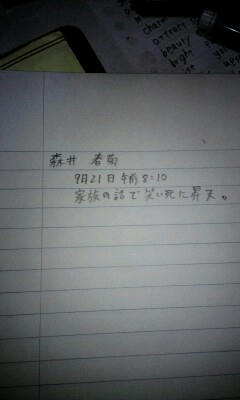 charm
attract
beauty
bright
森井 春菊
9月21日 午前 8:10
家族の話で笑い死に昇天。